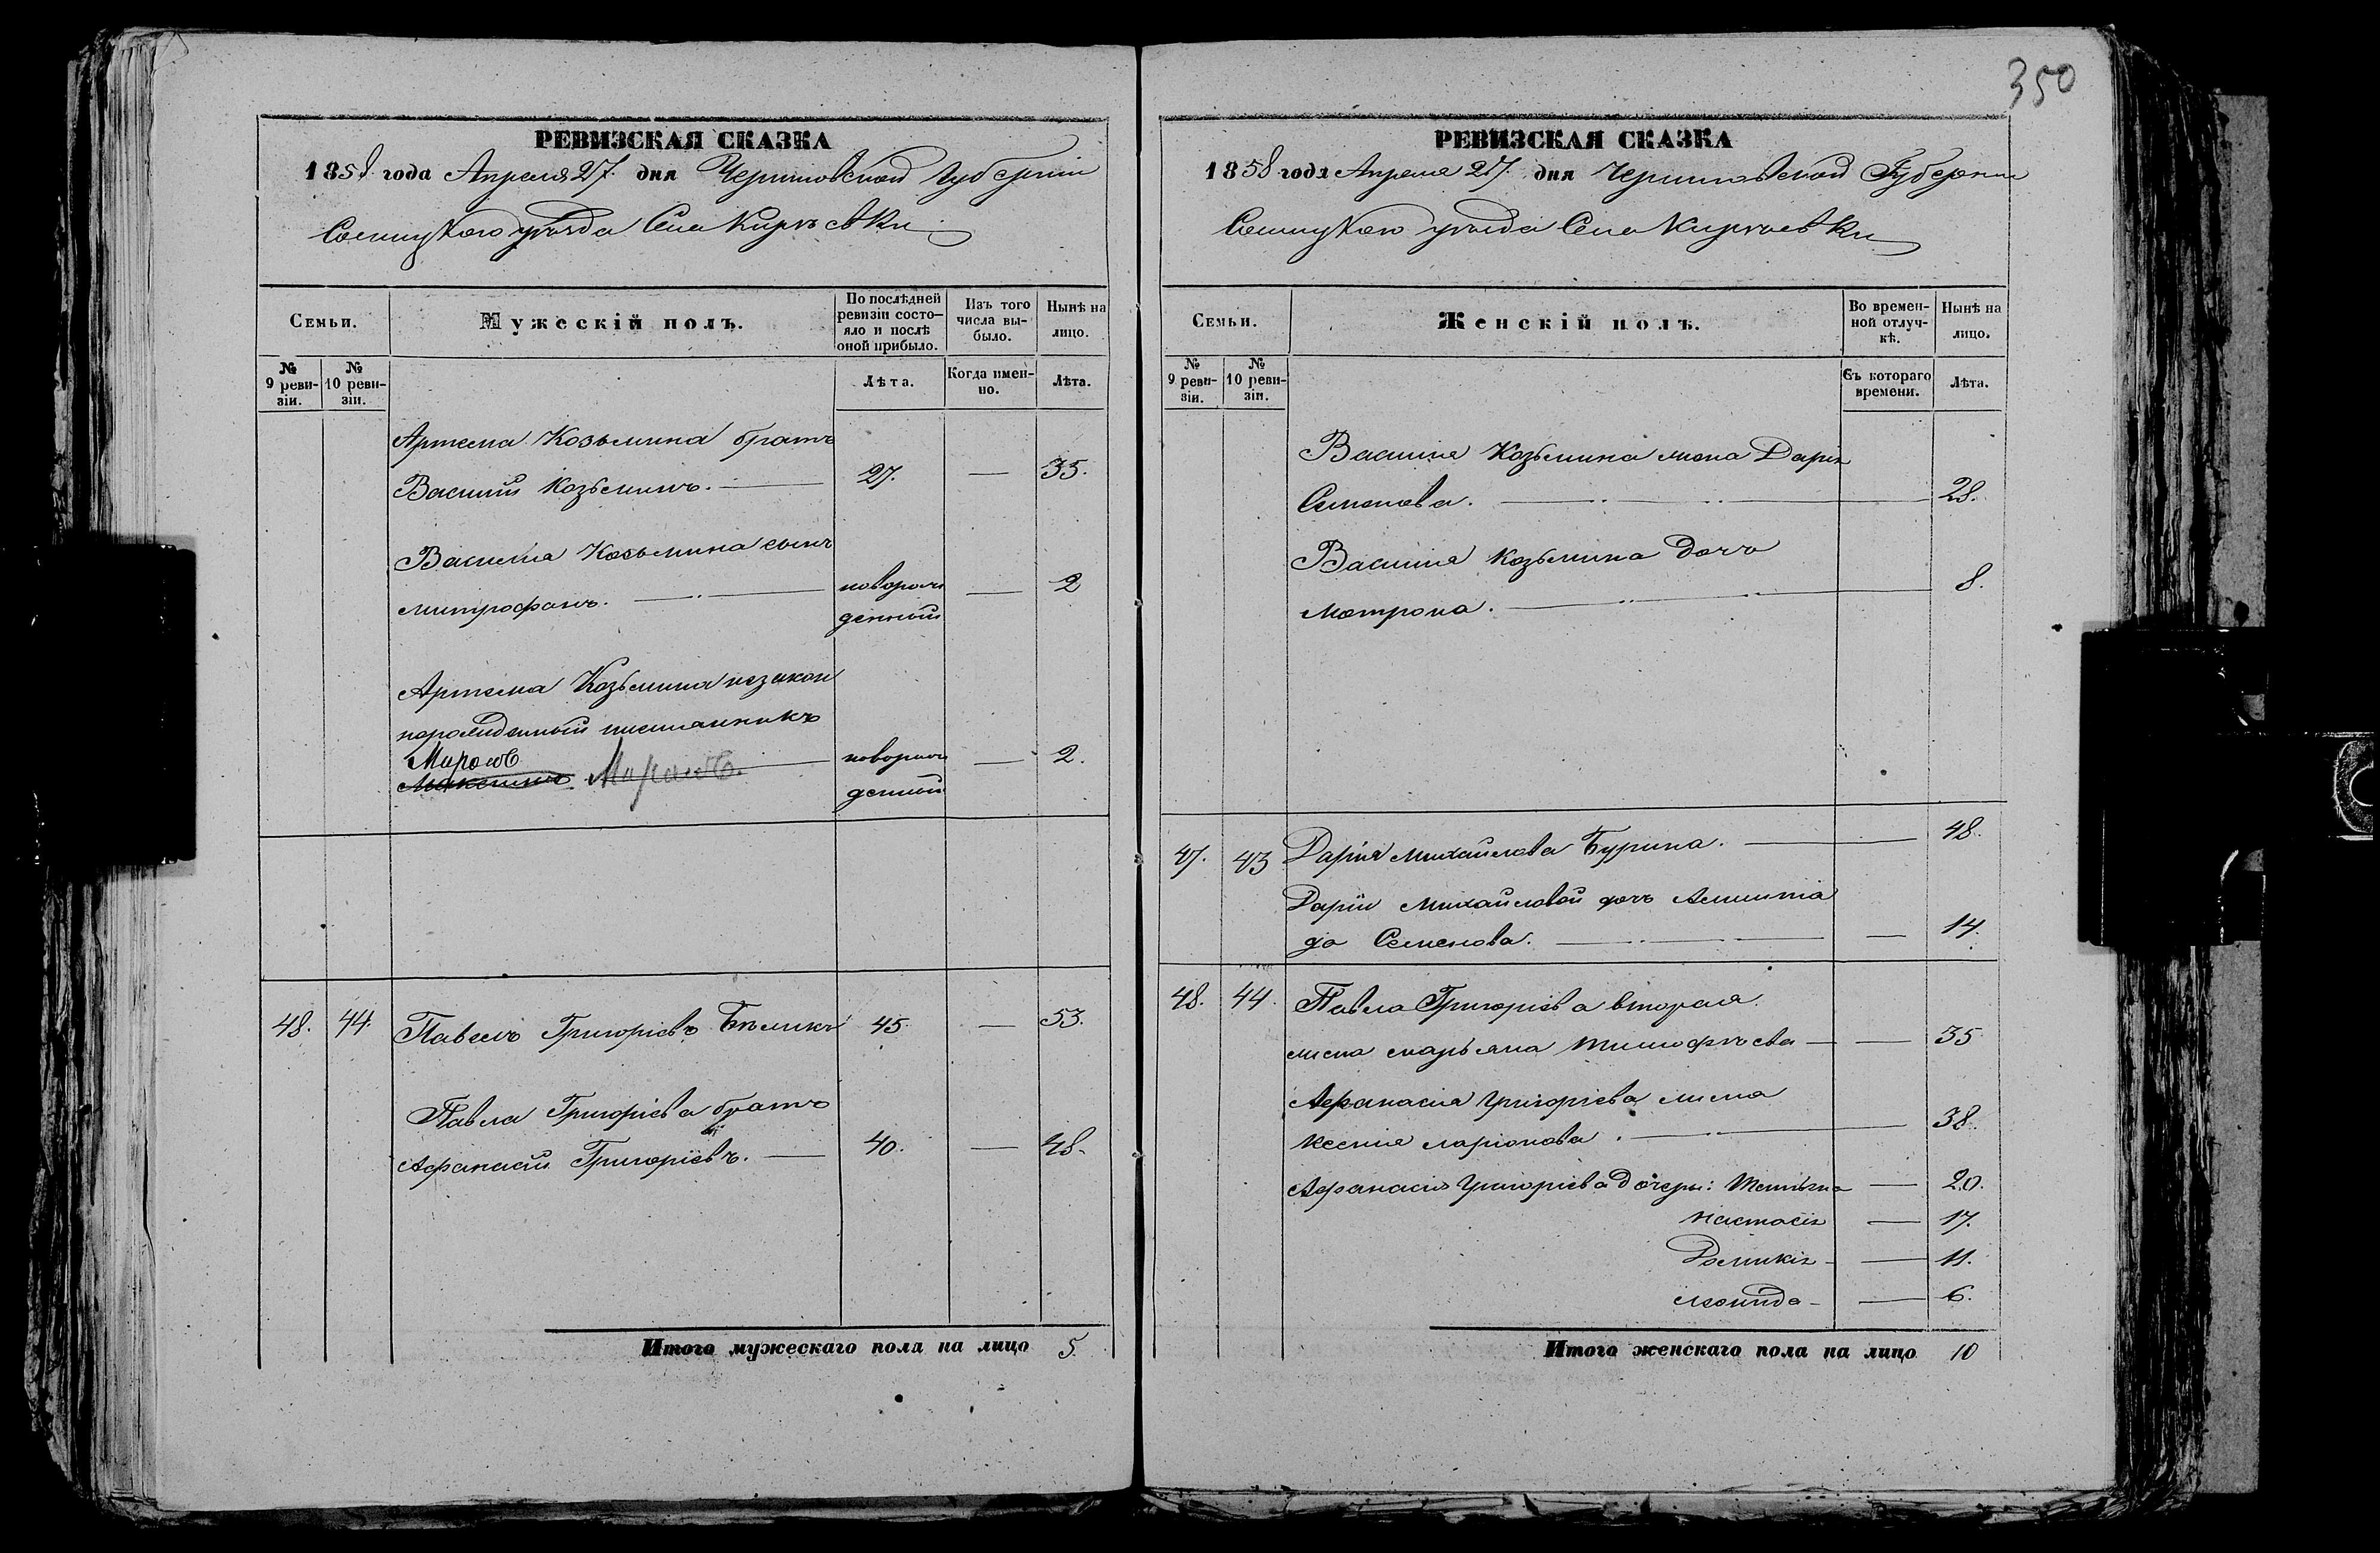 350
РЕВИЗСКАЯ СКАЗКА
1858 года Апреля 27. дня Черниговской Губерніи
Сосницкого уѣзда Села Кирѣевки
Семьи.
Мужескій полъ.
По послѣдней ревизіи состо-
яло и послѣ
оной прибыло.
Изъ того
числа вы-
было.
Нынѣ на
лицо.
№
9 реви-
зіи.
№
10 реви-
зіи.
Лѣта.
Когда имен-
но.
Лѣта.
Артема Козьмина братъ
Василій Козьминъ. 27. — 35.
Василія Козьмина сынъ
Митрофанъ. новорож
денный — 2
Артема Козьмина незакон
норожденный племянникъ
Миронъ новорож — 2.
Миронъ. денный
48. 44. Павелъ Григорьевъ Бѣликъ 45. — 53.
Павла Григоріева братъ
Афанасій Григоріевъ. — 40. — 48.
Итого мужескаго пола на лицо 5.
РЕВИЗСКАЯ СКАЗКА
1858 года Апреля 27. дня Черниговской Губерніи
Сосницкого уѣзда Села Кирѣевки
Семьи.
Женскій полъ.
Во времен-
ной отлуч-
кѣ.
Нынѣ на
лицо.
№
9 реви-
зіи.
№
10 реви-
зіи.
Съ котораго
времени.
Лѣта.
Василія Козьмина жена Дарія
Семенова. — 28.
Василія Козьмина дочь
Мотрона. — 8.
47. 43 Дарія Михайлова Бурина. — 48.
Даріи Михайловой дочь
да Семенова. — 14.
48. 44. Павла Григоріева вторая
жена Марьяна Тимофѣева — 35
Афанасія Григоріева жена
Ксенія Ларіонова. — 38.
Афанасія Григоріева дочери: Татьяна — 20.
Настасія — 17.
Домникія — 11.
— 6.
Итого женскаго пола на лицо 10